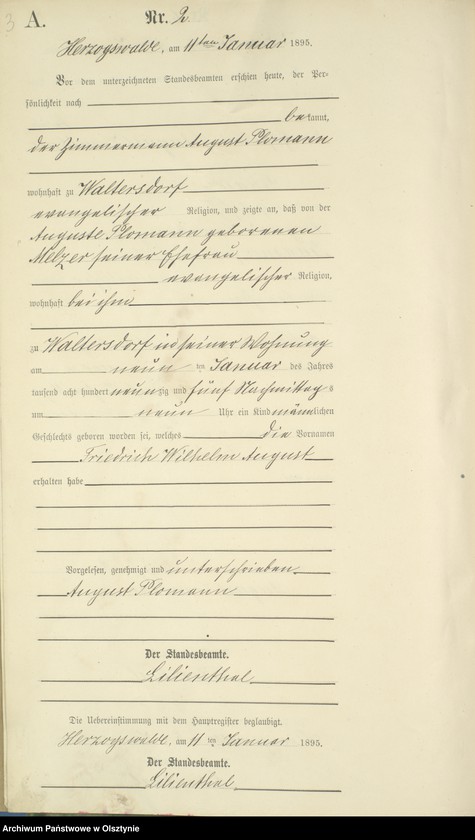 3
A.
Nr. 2.
Herzogswalde, am 11ten Januar 1895.
Vor dem unterzeichneten Standesbeamten erschien heute, der Per=
sönlichkeit nach
bekannt,
der Zimmermann August Plomann
wohnhaft zu Waltersdorf
evangelischer Religion, und zeigte an, daß von der
Auguste Plomann geborenen
Melzer seiner Ehefrau
evangelischer Religion,
wohnhaft bei ihm
zu Waltersdorf in seiner Wohnung
am neun ten Januar des Jahres
tausend acht hundert neunzig und fünf Nachmittags
um neun Uhr ein Kind männlichen
Geschlechts geboren worden sei, welches die Vornamen
Friedrich Wilhelm August
erhalten habe
Vorgelesen, genehmigt und unterschrieben
August Plomann
Der Standesbeamte.
Lilienthal
Die Uebereinstimmung mit dem Hauptregister beglaubigt.
Herzogswalde, am 11 ten Januar 1895.
Der Standesbeamte.
Lilienthal
Archiwum Państwowe w Olsztynie